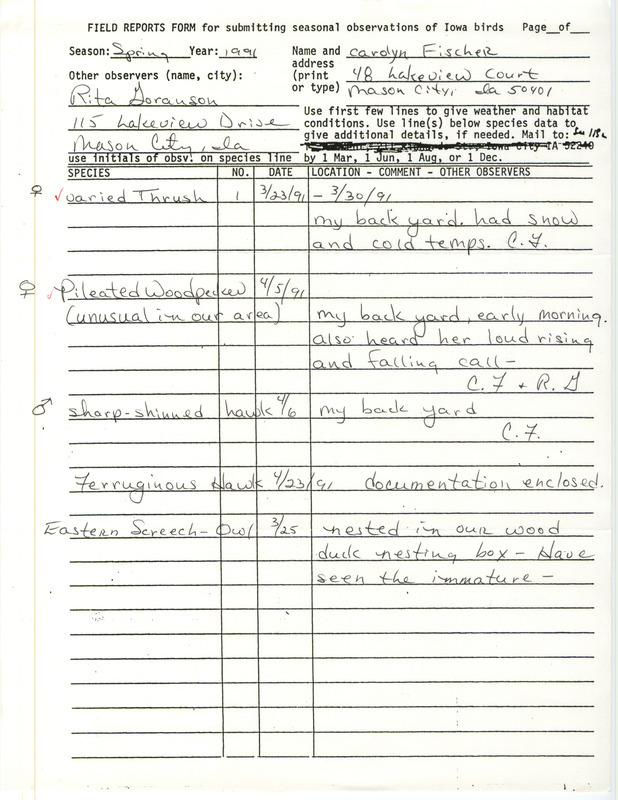 FIELD REPORTS FORM for submitting seasonal observations of Iowa birds Page__of___
Season: Spring Year: 1991 Name and Carolyn Fischer
address 48 Lakeview Court
Other observers (name, city): (print
or type) Mason City, Ia 50401
Rita Goranson
115 Lakeview Drive
Mason City, Ia
Use first few lines to give weather and habitat
conditions. Use line(s) below species data to
give additional details, if needed. Mail to:
Iowa City IA 52240
use initials of obsv. on species line by 1 Mar, 1 Jun, 1 Aug, or 1 Dec.
SPECIES NO. DATE LOCATION - COMMENT - OTHER OBSERVERS
♀ ✓ Varied Thrush 1 3/23/91 - 3/30/91
my back yard. had snow
and cold temps. C.F.
♀ ✓ Pileated Woodpecker 4/5/91
(unusual in our area) my back yard, early morning.
also heard her loud rising
and falling call-
C.F + R.G
♂ Sharp-shinned hawk 4/6 my back yard
C.F.
Ferruginous Hawk 4/23/91 documentation enclosed.
Eastern Screech-Owl 3/25 nested in our wood
duck nesting box - Have
seen the immature -